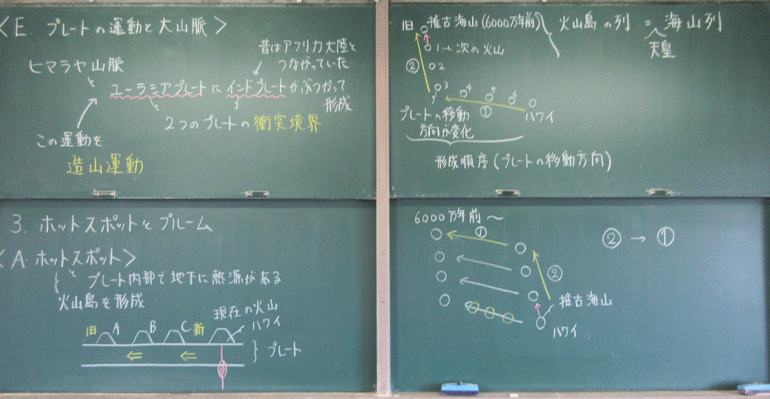 <E. プレートの運動と大山脈>
昔はアフリカ大陸と
つながっていた
ヒマラヤ山脈
と
ユーラシアプレートにインドプレートがぶつかって
形成
2つのプレートの衝突境界
この運動を
造山運動
3. ホットスポットとプルーム
<A. ホットスポット>
と
プレート内部で地下に熱源がある
火山島を形成
現在の火山
ハワイ
旧 A B C 新
プレート
旧 推古海山(6000万年前) 火山島の列 = 海山列
天皇
1→次の火山
②
2
3
4 5 6
①
ハワイ
プレートの移動
方向が変化
形成順序(プレートの移動方向)
6000万年前〜
①
② → ①
②
推古海山
ハワイ